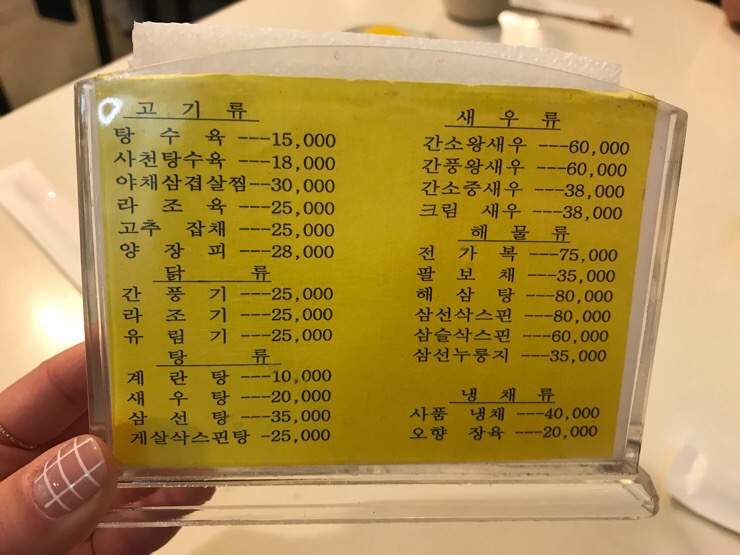 고 기 류
탕 수 육 ---15,000
사천탕수육 ---18,000
야채삼겹살찜--30,000
라 조 육 ---25,000
고추 잡채 ---25,000
양 장 피 ---28,000
닭 류
간 풍 기 ---25,000
라 조 기 ---25,000
유 림 기 ---25,000
탕 류
계 란 탕 ---10,000
새 우 탕 ---20,000
삼 선 탕 ---35,000
게살삭스핀탕 -25,000
새 우 류
간소왕새우 ---60,000
간풍왕새우 ---60,000
간소중새우 ---38,000
크림 새우 ---38,000
해 물 류
전 가 복 ---75,000
팔 보 채 ---35,000
해 삼 탕 ---80,000
삼선삭스핀 ---80,000
삼슬삭스핀 ---60,000
삼선누룽지 ---35,000
냉 채 류
사품 냉채 ---40,000
오향 장육 ---20,000